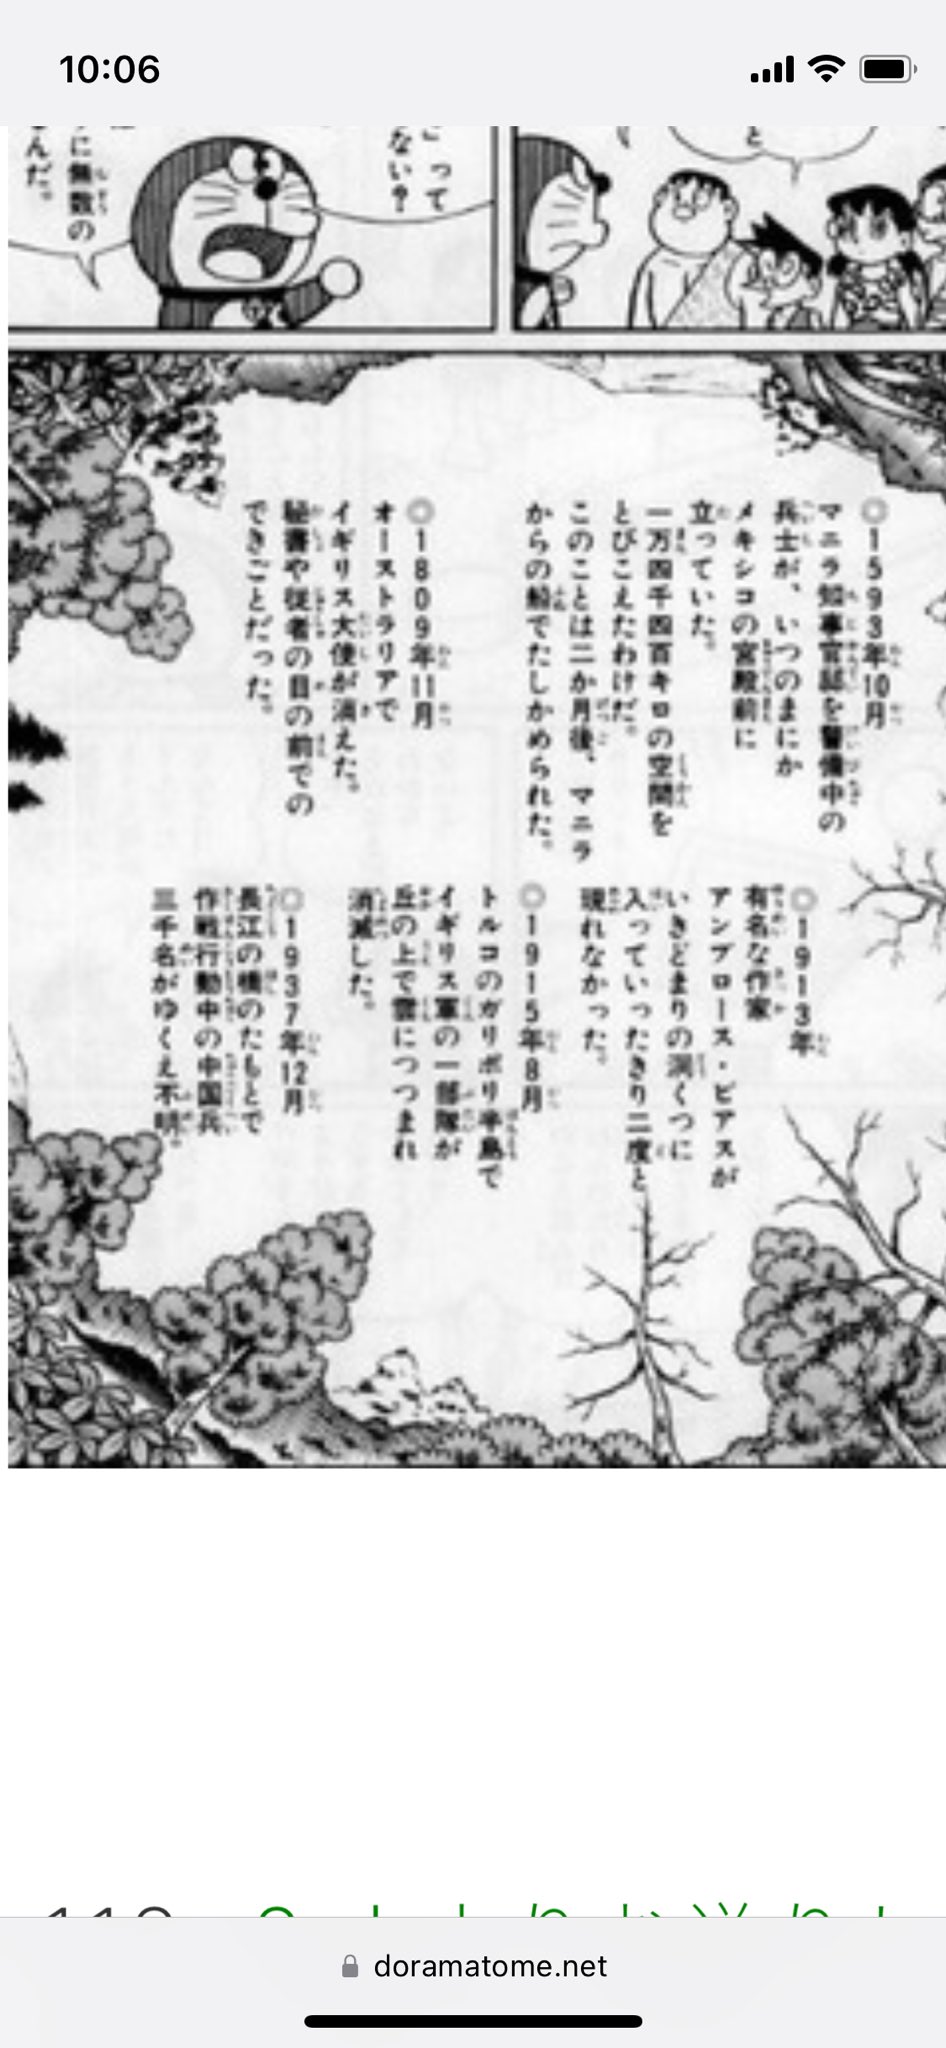 10:06
と
」って
ない？
に無数の
んだ。
◎1593年10月
マニラ知事官邸を警備中の
兵士が、いつのまにか
メキシコの宮殿前に
立っていた。
一万四千四百キロの空間を
とびこえたわけだ。
このことは二か月後、マニラ
からの船でたしかめられた。
◎1809年11月
オーストラリアで
イギリス大使が消えた。
秘書や従者の目の前での
できごとだった。
◎1913年
有名な作家
アンブローズ・ビアスが
いきどまりの洞くつに
入っていったきり二度と
現れなかった。
◎1915年8月
トルコのガリポリ半島で
イギリス軍の一部隊が
丘の上で雲につつまれ
消滅した。
◎1937年12月
長江の橋のたもとで
作戦行動中の中国兵
三千名がゆくえ不明。
doramatome.net